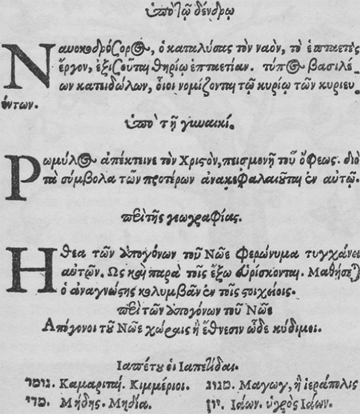 ὑπὸ τῷ δένδρῳ
Ναυοκοδρόζορος, ὁ καταλύσας τὸν ναὸν, τὸ ἑπταετὲς
ἔργον, ἐξισοῦται θηρίῳ ἑπταετίαν. τύπος βασιλέ
ων κατειδώλων, ὅιοι νομίζονται τῷ κυρίῳ τῶν κυριευ
όντων.
ὑπὸ τῇ γυναικί.
Ρωμύλος ἀπέκτεινε τὸν Χριστὸν, πεισμονῇ τοῦ ὄφεως. διὸ
τὰ σύμβολα τῶν προτέρων ἀνακεφαλαιοῦται ἐν αὐτῷ.
περὶ τῆς γεωγραφίας.
Ηθεα τῶν ἀπογόνων τοῦ Νῶε φερώνυμα τυγχάνει
αὐτῶν. Ως καὶ παρὰ τοῖς ἔξω εὑρίσκονται. Μαθήσεται
ὁ ἀναγνώστης κολυμβᾶν ἐν τοῖς στοιχείοις.
περὶ τῶν ἀπογόνων τοῦ Νῶε
Απόγονοι τοῦ Νῶε χώραις ἢ ἔθνεσιν ὧδε κύδιμοι.
Ιαπέτου οἱ Ιαπετίδαι.
גומר. Καμαριτη. Κιμμέριοι. מגוג. Μαγωγ, ἢ ἱεράπολις
מדי. Μήδης. Μηδία. יון. Ιάων. ὑγρὸς Ιάων.